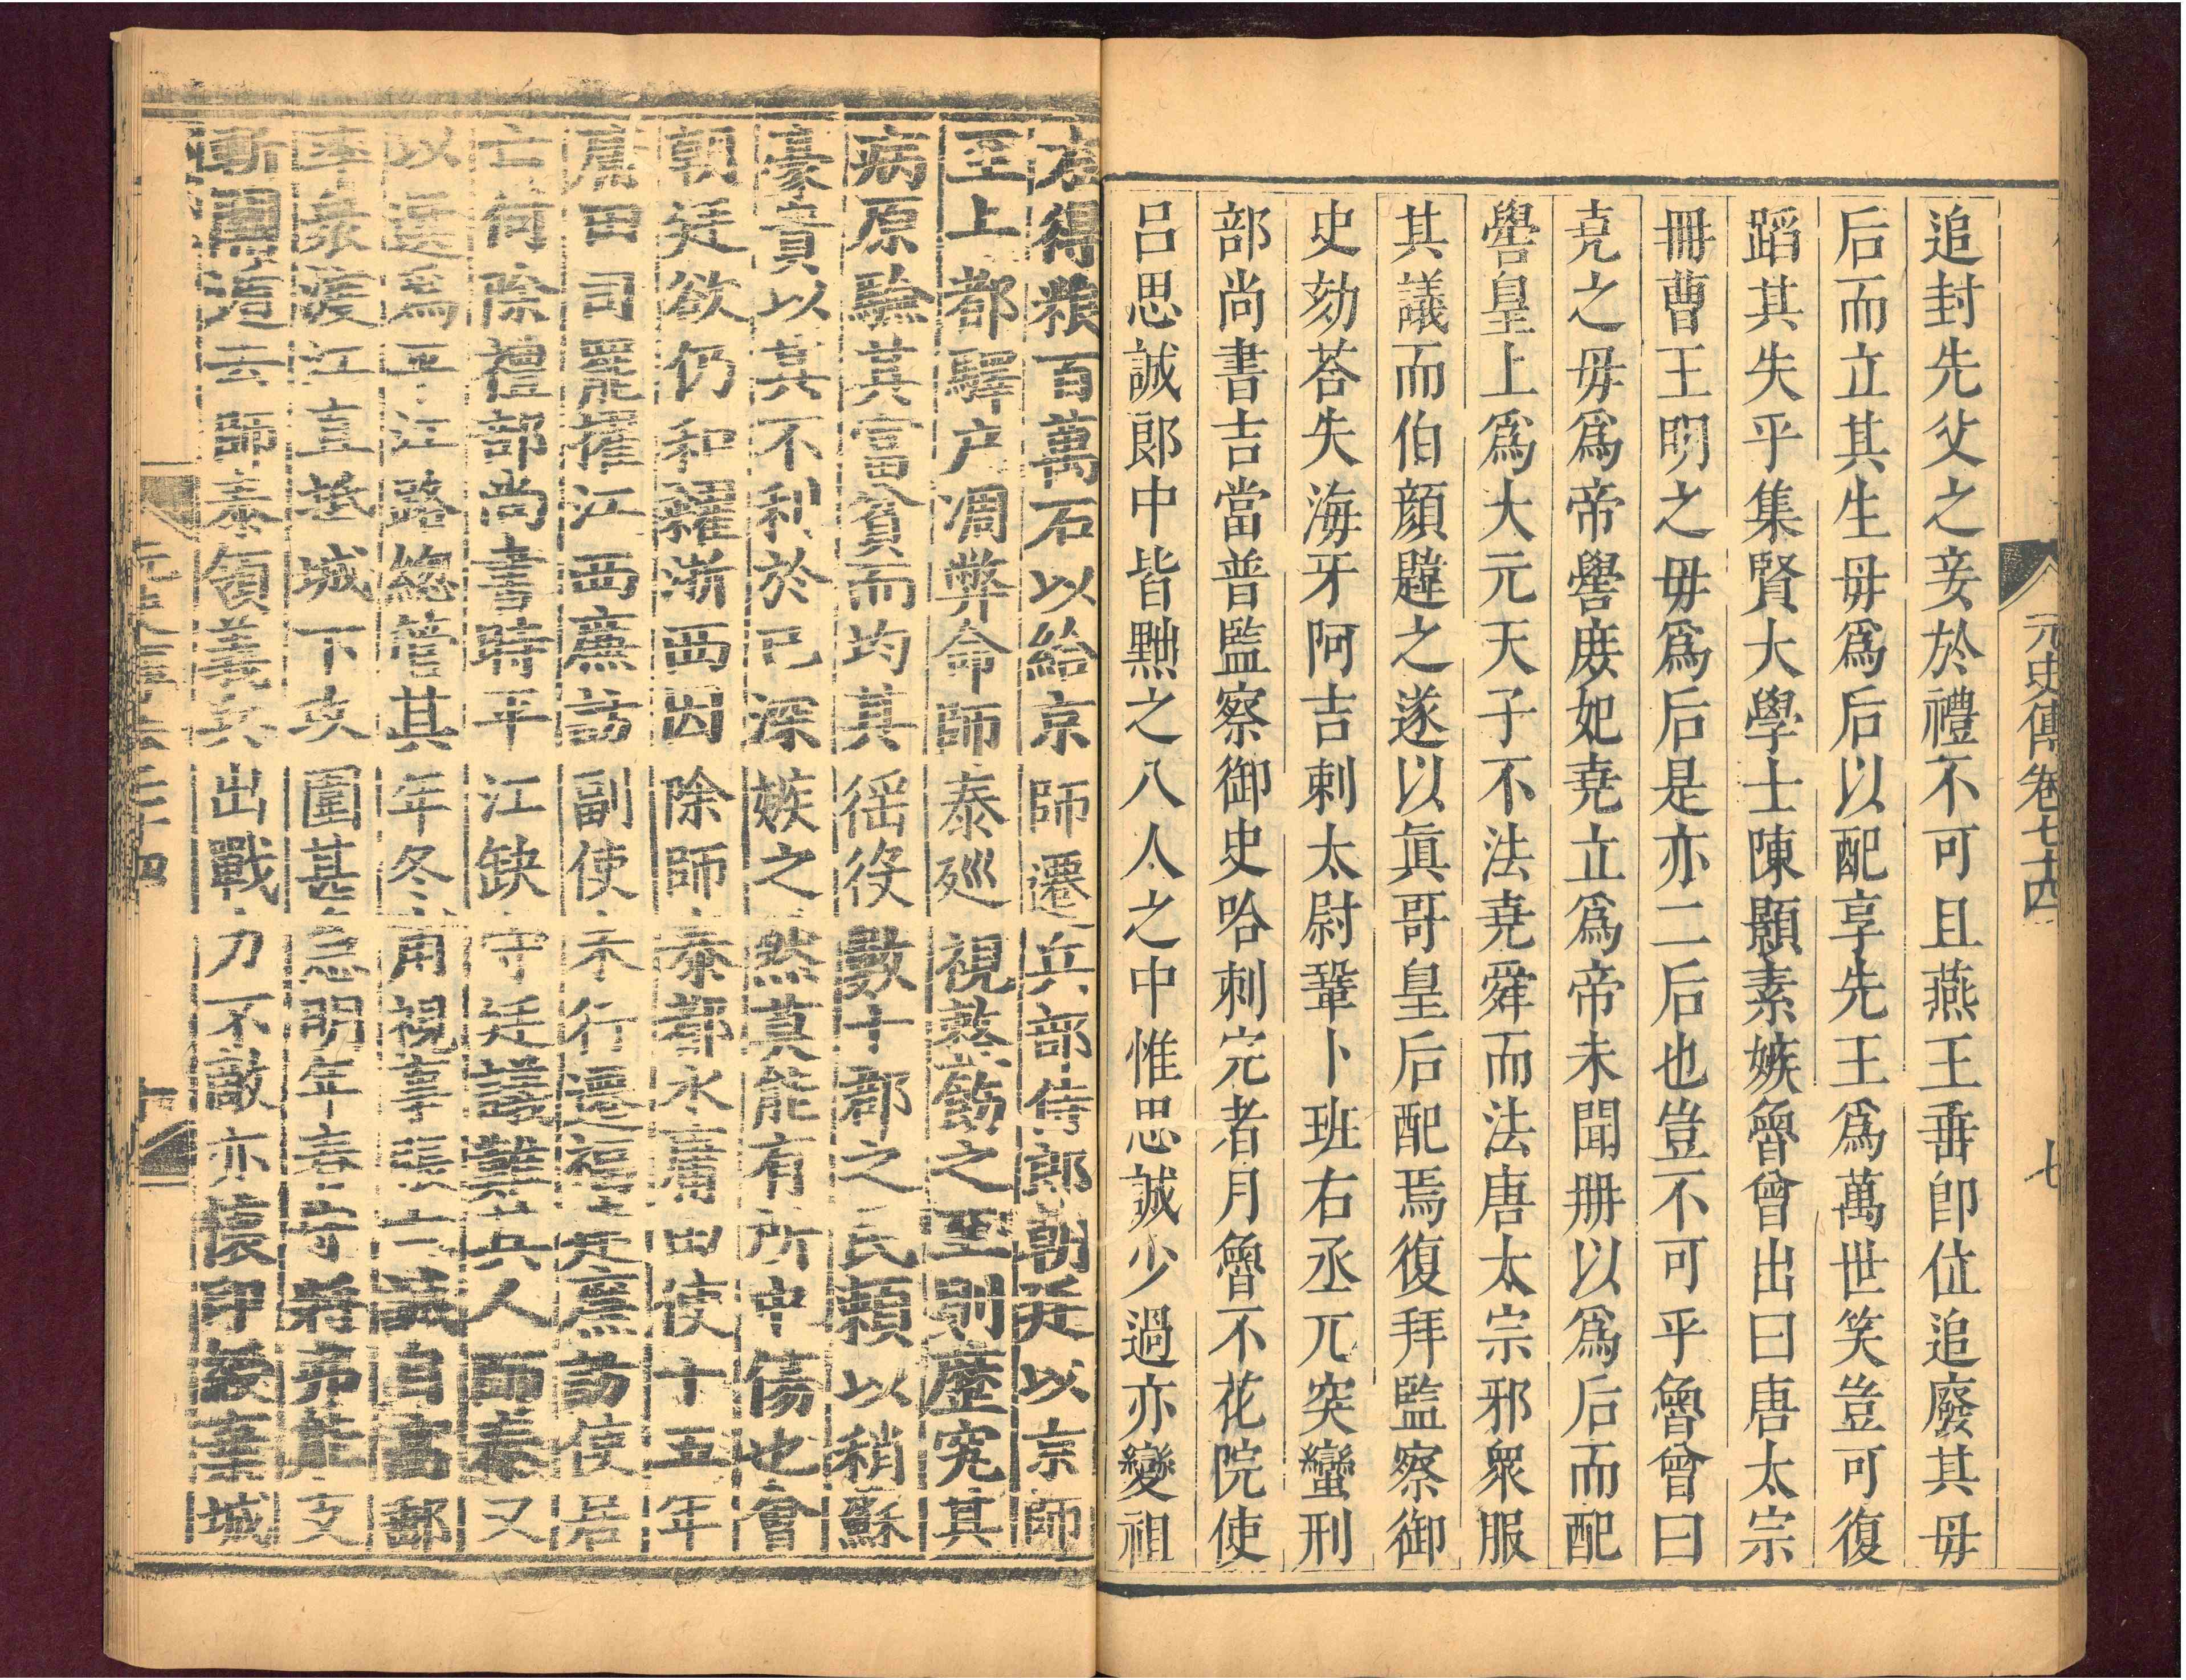 元史傳卷七十四
七
追封先父之妾於禮不可且燕王垂即位追廢其毋
后而立其生毋爲后以配享先王爲萬世笑豈可復
蹈其失乎集賢大學士陳顥素嫉魯曾出曰唐太宗
冊曹王明之毋爲后是亦二后也豈不可乎魯曾曰
堯之毋爲帝嚳庻妃堯立爲帝未聞册以爲后而配
嚳皇上爲大元天子不法堯舜而法唐太宗邪衆服
其議而伯顔韙之遂以眞哥皇后配焉復拜監察御
史劾荅失海牙阿吉剌太尉鞏卜班右丞兀突蠻刑
部尚書吉當普監察御史哈剌完者月魯不花院使
呂思誠郎中皆黜之八人之中惟思誠少過亦變祖
右得粮百萬石以給京師遷兵部侍郎朝廷以京師
至上都驛户凋弊命師泰廵視整飭之至則歷究其
病原驗其富貧而均其徭役數十郡之民賴以稍蘇
豪貴以其不利於已深嫉之然莫能有所中傷也會
朝廷欲仍和糴浙西因除師泰都水庸田使十五年
庸田司罷擢江西廉訪副使未行遷福建廉訪使居
亡何除禮部尚書時平江缺守廷議難其人師泰又
以選爲平江路總管其年冬甫視事張士誠自高郵
率衆渡江直抵城下攻圍甚急明年春守將弗能支
斬關遁去師泰領義兵出戰力不敵亦懷印綬棄城